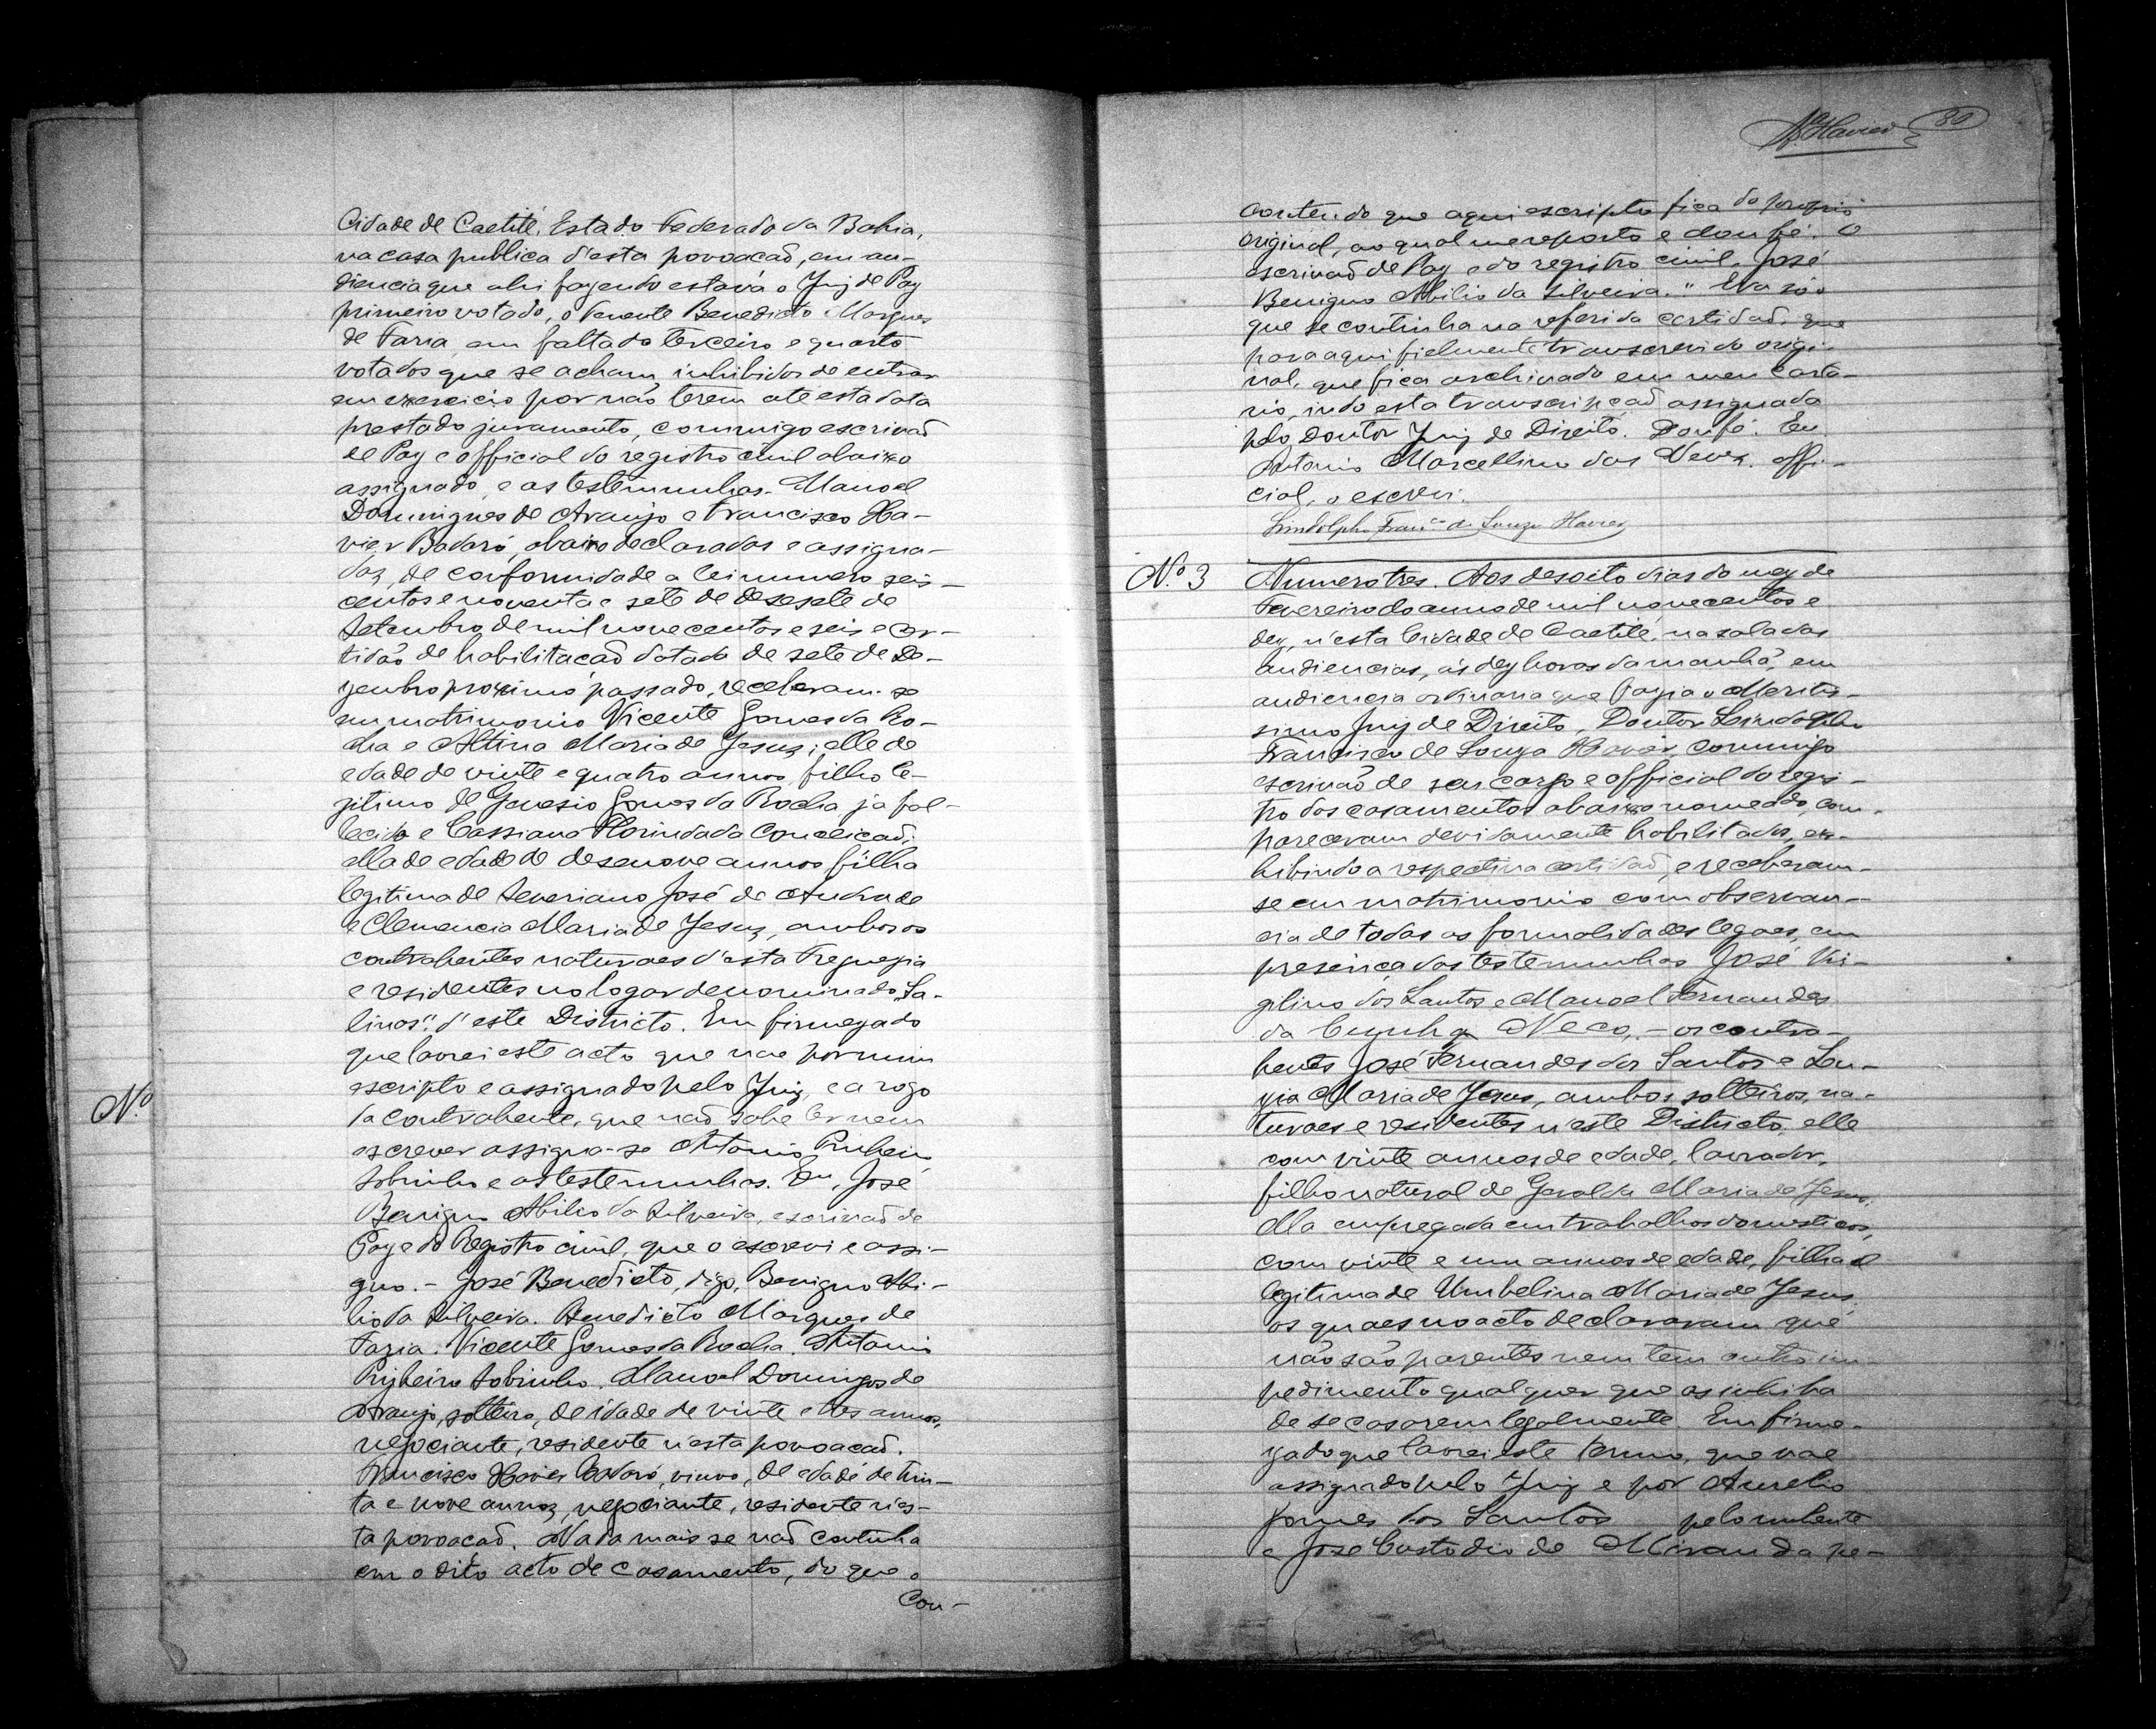 Cidade de Caetité, Estado Federado da Bahia,
na casa publica d'esta povoacaõ, em au-
diencia que ahi fazendo estava o Juiz de Paz
primeiro votado, o Tenente Benedicto Marques
de Faria em falta do terceiro e quarto
votados que se acham inhibidos de entrar
em exercicio por não terem até esta data
prestado juramento, commigo escrivaõ
de Paz e official do registro civil abaixo
assignado, e as testemunhas. Manoel
Domingues de Araujo e Francisco Xa-
vier Badaró, abaixo declarados e assigna-
dos, de conformidade a lei numero seis-
centos e noventa e sete de desesete de
Setembro de mil nove centos e seis e cer-
tidão de habilitacaõ datada de sete de De-
zembro proximo passado, receberam-se
em matrimonio Vicente Gomes da Ro-
cha e Altina Maria de Jesus; elle de
edade de vinte e quatro annos, filho le-
gitimo de Genesio Gomes da Rocha ja fal-
lecido e Cassiana Florinda da Conceicaõ;
ella de edade de desenove annos filha
legitima de Severiano José de Andrade
e Clemencia Maria de Jesus, ambos os
contrahentes naturaes d'esta Freguezia
e residentes no logar denominado "Sa-
linas" d'este Districto. Em firmeza do
que lavrei este acto que vae por mim
escripto e assignado pelo Juiz, e a rogo
da contrahente, que naõ sabe ler nem
escrever assigna-se Antonio Pinheiro
Sobrinho e as testemunhas. Eu, José
Benigno Abilio da Silveira, escrivaõ de
Paz e do Registro civil, que o escrevi e assi-
gno. - José Benedicto, digo, Benigno Abi-
lio da Silveira. Benedicto Marques de
Faria. Vicente Gomes da Rocha. Antonio
Pinheiro Sobrinho. Manoel Domingos de
Araujo, solteiro, de idade de vinte e tres annos,
negociante, residente n'esta povoacaõ.
Francisco Xavier Badaró, viuvo, de edade de trin-
ta e nove annos, negociante, residente n'es-
ta povoacaõ. Nada mais se naõ continha
em o dito acto de casamento, do que o
Con-
Nº
80
conteúdo que aqui escripto fica do proprio
original, ao qual me reporto e dou fé. O
escrivaõ de Paz e do registro civil. José
Benigno Abilio da Silveira." Era só o
que se continha na referida certidaõ, que
para aqui fielmente transcrevi do origi-
nal, que fica archivado em meu Carto-
rio, indo esta transcripcaõ assignada
pelo Doutor Juiz de Direito. Dou fé. Eu
Antonio Marcellino das Neves. offi-
cial, o escrevi.
Lindolpho Franco de Souza Xavier
Nº 3 Numero tres. Aos desoito dias do mez de
Fevereiro do anno de mil novecentos e
dez, n'esta Cidade de Caetité, na sala das
audiencias, ás dez horas da manhã, em
audiencia ordinaria que fazia o Meritis-
simo Juiz de Direito, Doutor Lindolpho
Francisco de Souza Xavier commigo
escrivaõ de seu cargo e official do regis-
tro dos casamentos abaixo nomeado, com-
pareceram devidamente habilitados, ex-
hibindo a respectiva certidaõ, e receberam-
se em matrimonio com observan-
cia de todas as formalidades legaes, em
presença das testemunhas José Vir-
gilino dos Santos e Manoel Fernandes
da Cunha Neco, - os contra-
hentes José Fernandes dos Santos e Lou-
ria Maria de Jesus, ambos solteiros, na-
turaes e residentes n'este Districto, elle
com vinte annos de edade, lavrador,
filho natural de Geralda Maria de Jesus;
ella empregada em trabalhos domesticos,
com vinte e um annos de edade, filha
legitima de Umbelina Maria de Jesus,
os quaes no acto declararam que
não são parentes nem tem outro im-
pedimento qualquer que os inhiba
de se casarem legalmente. Em firme-
za do que lavrei este termo, que vae
assignado pelo Juiz e por Aurelio
Gomes dos Santos pelo nubente
e José Custodio de Miranda pe-